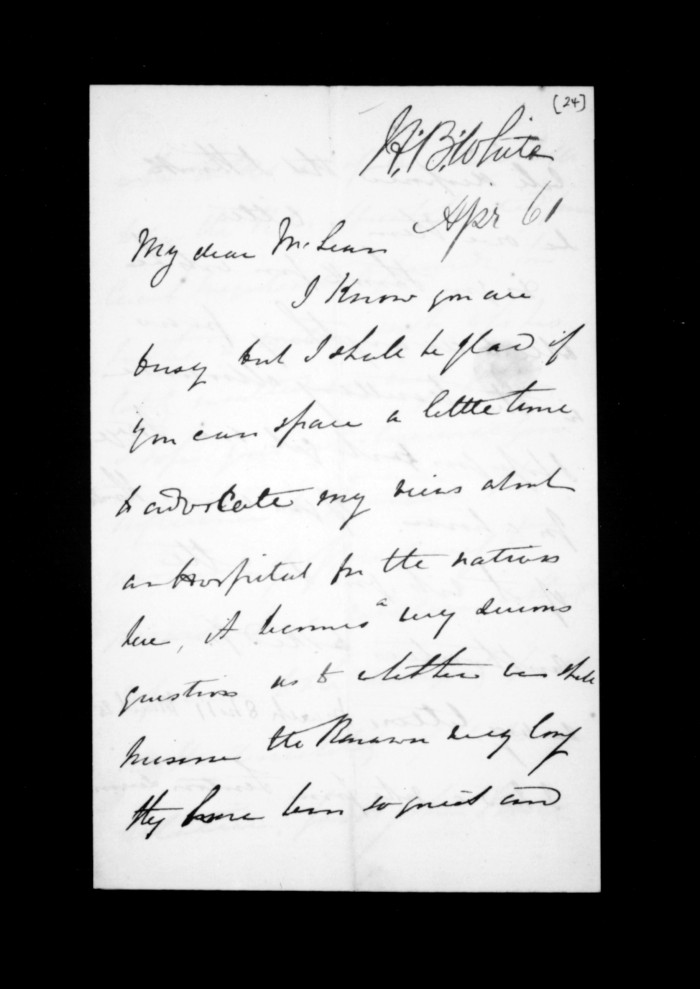 [24]
H. B. White
Apr 61
My dear McLean
I Know you are
busy but I shall be glad if
you can spare a little time
to advocate my views about
an Hospital for the natives
here, it becomes a very serious
question as to whether we shall
the very long
they have been so quiet and